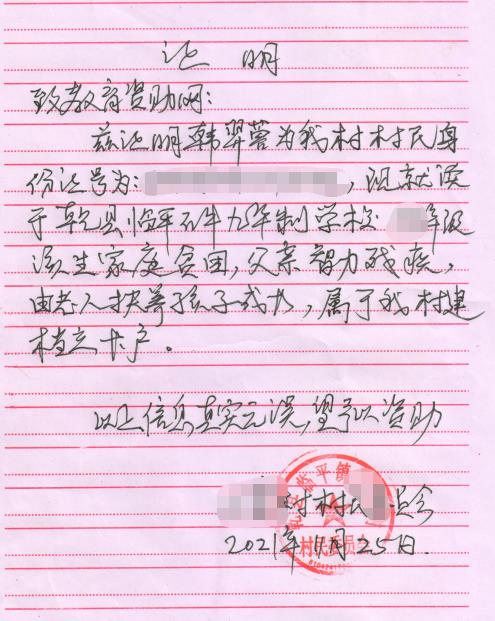 证 明
致教育资助网:
兹证明韩羿萱为我村村民身
份证号为: ,现就读
于乾县临平石牛九年制学校 年级
该生家庭贫困,父亲智力残疾,
由老人扶养孩子成长,属于我村建
档立卡户。
以上信息真实无误,望予以资助
村村民 员会
2021年11月25日.
乾县临平镇
村民委员会